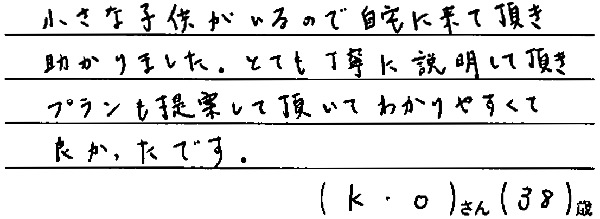 小さな子供がいるので自宅に来て頂き
助かりました。とても丁寧に説明して頂き
プランも提案して頂いてわかりやすくて
良かったです。
(K・O)さん(38)歳